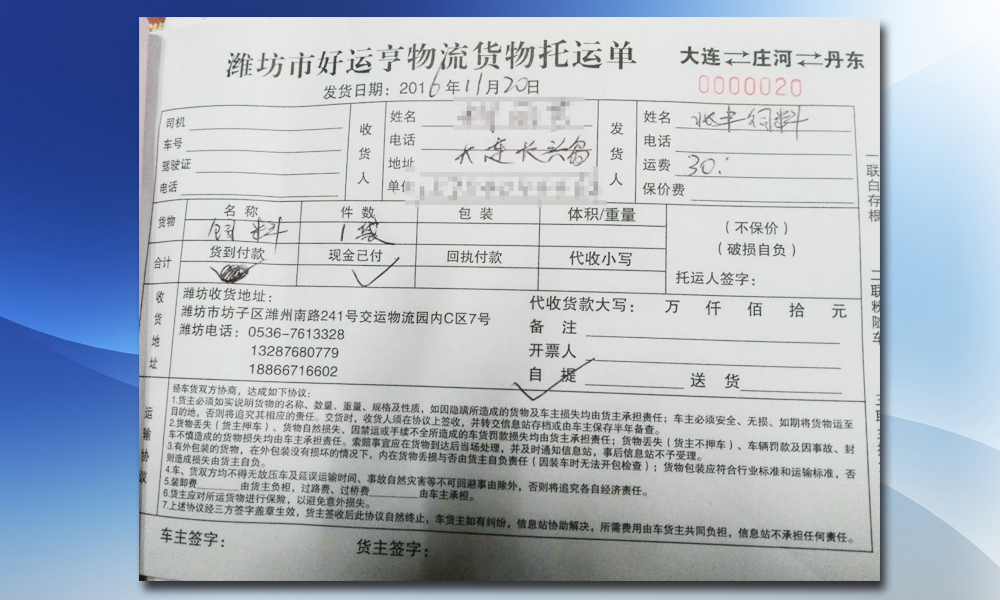 潍坊市好运亨物流货物托运单
大连⇌庄河⇌丹东
0000020
发货日期：2016年11月20日
司机
车号
驾驶证
电话
收货人
姓名
电话
地址 大连长兴岛
单位
发货人
姓名 兆丰饲料
电话
运费 30：
保价费
货物
名 称 件 数 包 装 体积/重量
饲料 1袋
（不保价）
（破损自负）
托运人签字：
合计
货到付款 现金已付 回执付款 代收小写
收货地址
潍坊收货地址：
潍坊市坊子区潍州南路241号交运物流园内C区7号
潍坊电话：0536-7613328
13287680779
18866716602
代收货款大写： 万 仟 佰 拾 元
备 注
开票人
自 提 送 货
运输协议
经车货双方协商，达成如下协议：
1.货主必须如实说明货物的名称、数量、重量、规格及性质，如因隐瞒所造成的货物及车主损失均由货主承担责任；车主必须安全、无损、如期将货物运至
目的地，否则将追究其相应的责任。交货时，收货人须在协议上签收，并转交信息站存档或由车主保存半年备查。
2.货物丢失（货主押车）、货物自然损失、因禁运或手续不全所造成的车货罚款损失均由货主承担责任；货物丢失（货主不押车）、车辆罚款及因事故、封
车不慎造成的货物损失均由车主承担责任。索赔事宜应在货物到达后当场处理，并及时通知信息站，事后信息站不予受理。
3.有外包装的货物，在外包装没有损坏的情况下，内在货物丢损与否由货主自负责任（因装车时无法开包检查）；货物包装应符合行业标准和运输标准，否
则造成损失由货主自负。
4.车、货双方均不得无故压车及延误运输时间、事故自然灾害等不可回避事由除外，否则将追究各自经济责任。
5.装卸费______由货主负担，过路费、过桥费______由车主承担。
6.货主应对所运货物进行保险，以避免意外损失。
7.上述协议经三方签字盖章生效，货主签收后此协议自然终止，车货主如有纠纷，信息站协助解决，所需费用由车货主共同负担，信息站不承担任何责任。
车主签字： 货主签字：
一联白存根